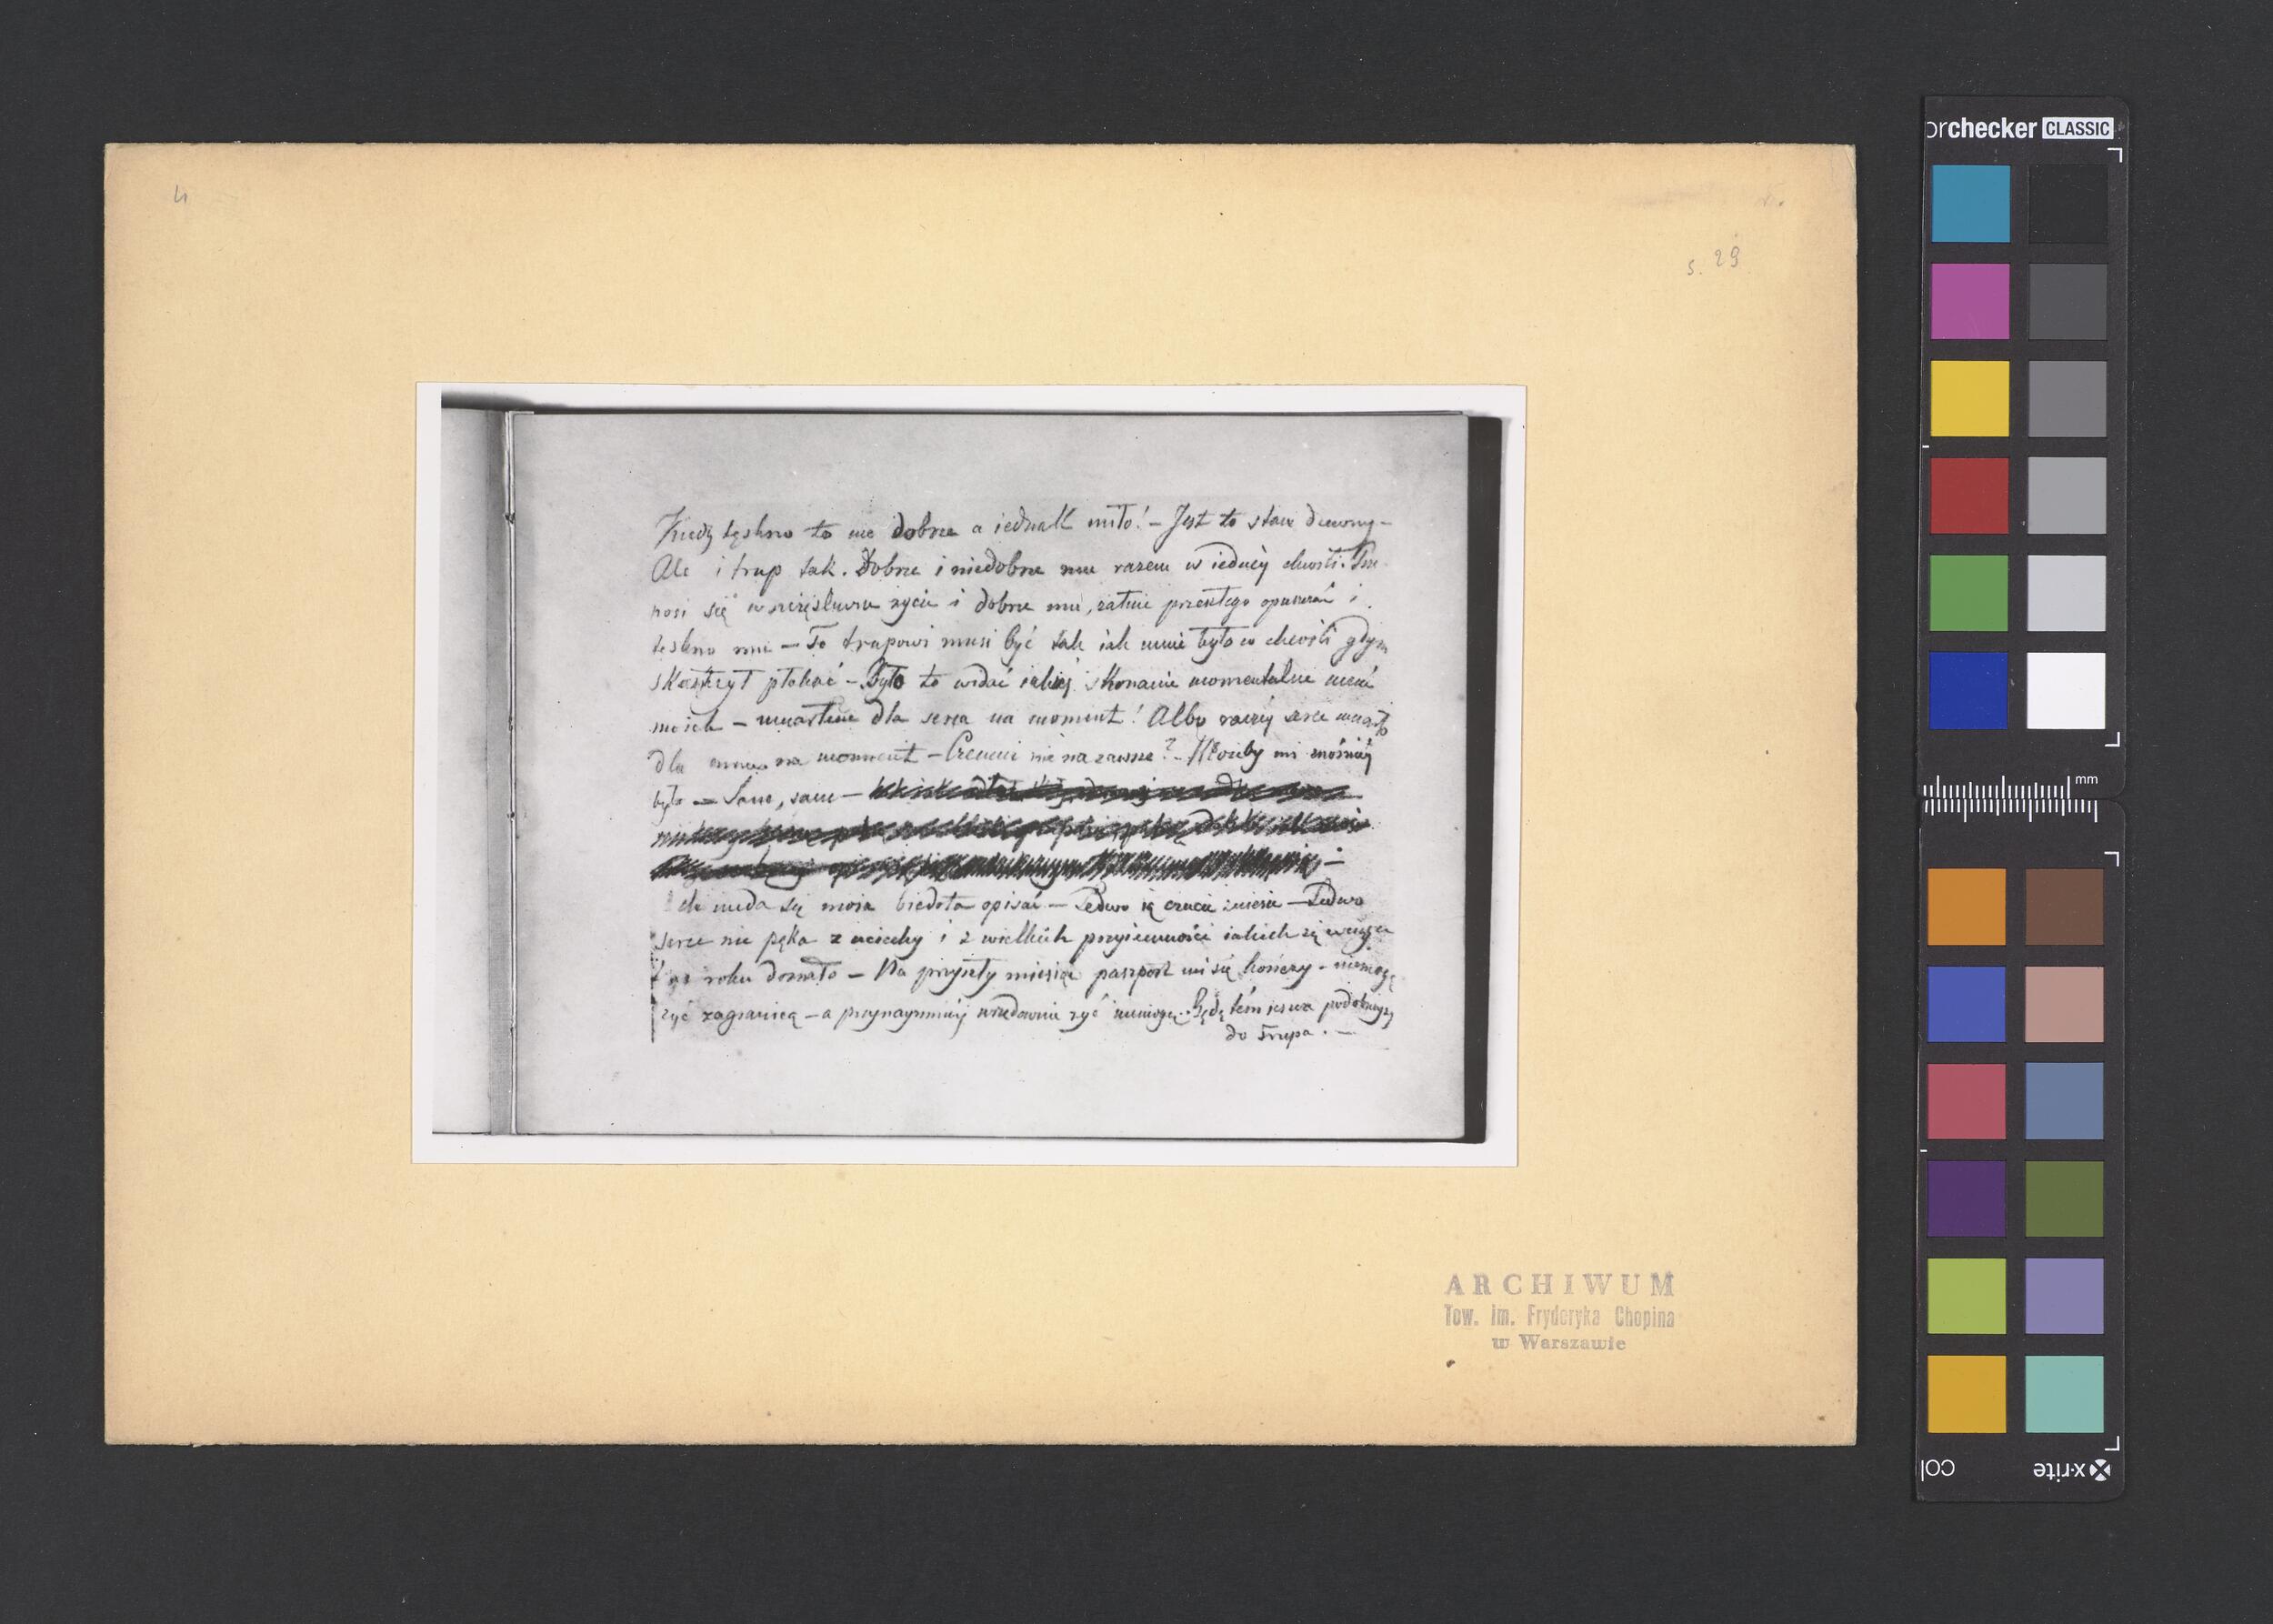 4
s. 29
Kiedy tęskno to nie dobrze a iednak miło! – Jest to stan dziwny –
Ale i trup tak. Dobrze i niedobrze mu razem w iednéy chwili. Prze-
nosi się w szczęśliwsze życie i dobrze mu, żałuie przeszłego opuszczać i
teskno mu – To trupowi musi być tak iak mnie było w chwili gdym
skończył płakać – Było to widać iakieś skonanie momentalne uczuć
moich – umarłem dla serca na moment! Albo raczéy serce umarło
dla mnie na moment – Czemu nie na zawsze? – Możeby mi znośniéy
było – Sam, sam –
Ach nieda się moia biedota opisać – Ledwo ią czucie zniesie – Ledwo
serce nie pęka z uciechy i z wielkich przyiemności iakich się w ciągu
tego roku doznało – Na przyszły miesiąc paszport mi się kończy – niemogę
żyć zagranicą – a przynaymniéy urzędownie żyć niemogę. Będę tém ieszcze podobnieyszy
do trupa. –
ARCHIWUM
Tow. im. Fryderyka Chopina
w Warszawie
orchecker CLASSIC
mm
x-rite
col